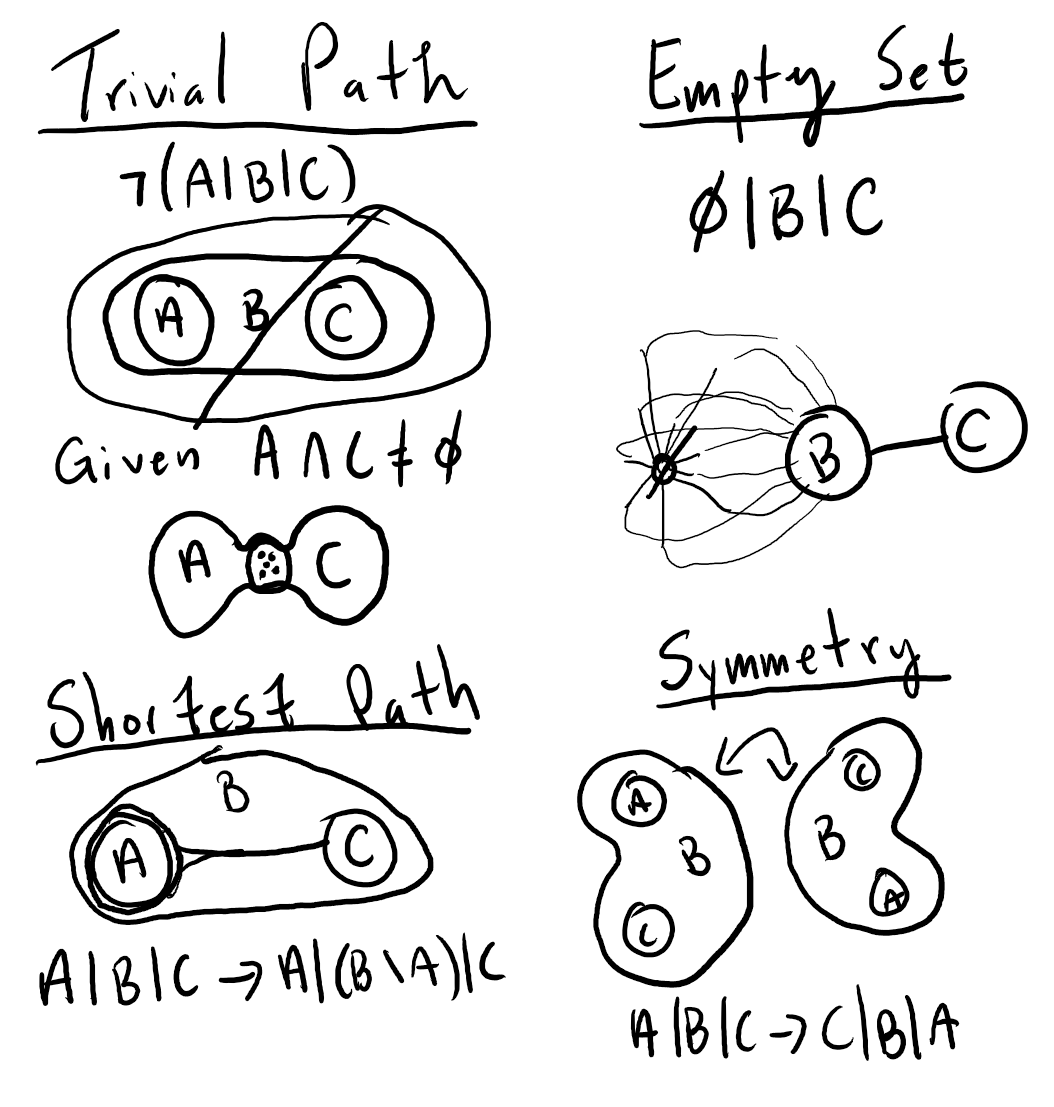 Trivial Path
¬(A|B|C)
A B C
Given A ∩ C ≠ ∅
A C
Shortest Path
B
A C
A|B|C → A|(B\A)|C
Empty Set
∅|B|C
∅ B C
Symmetry
A B C
C B A
A|B|C → C|B|A